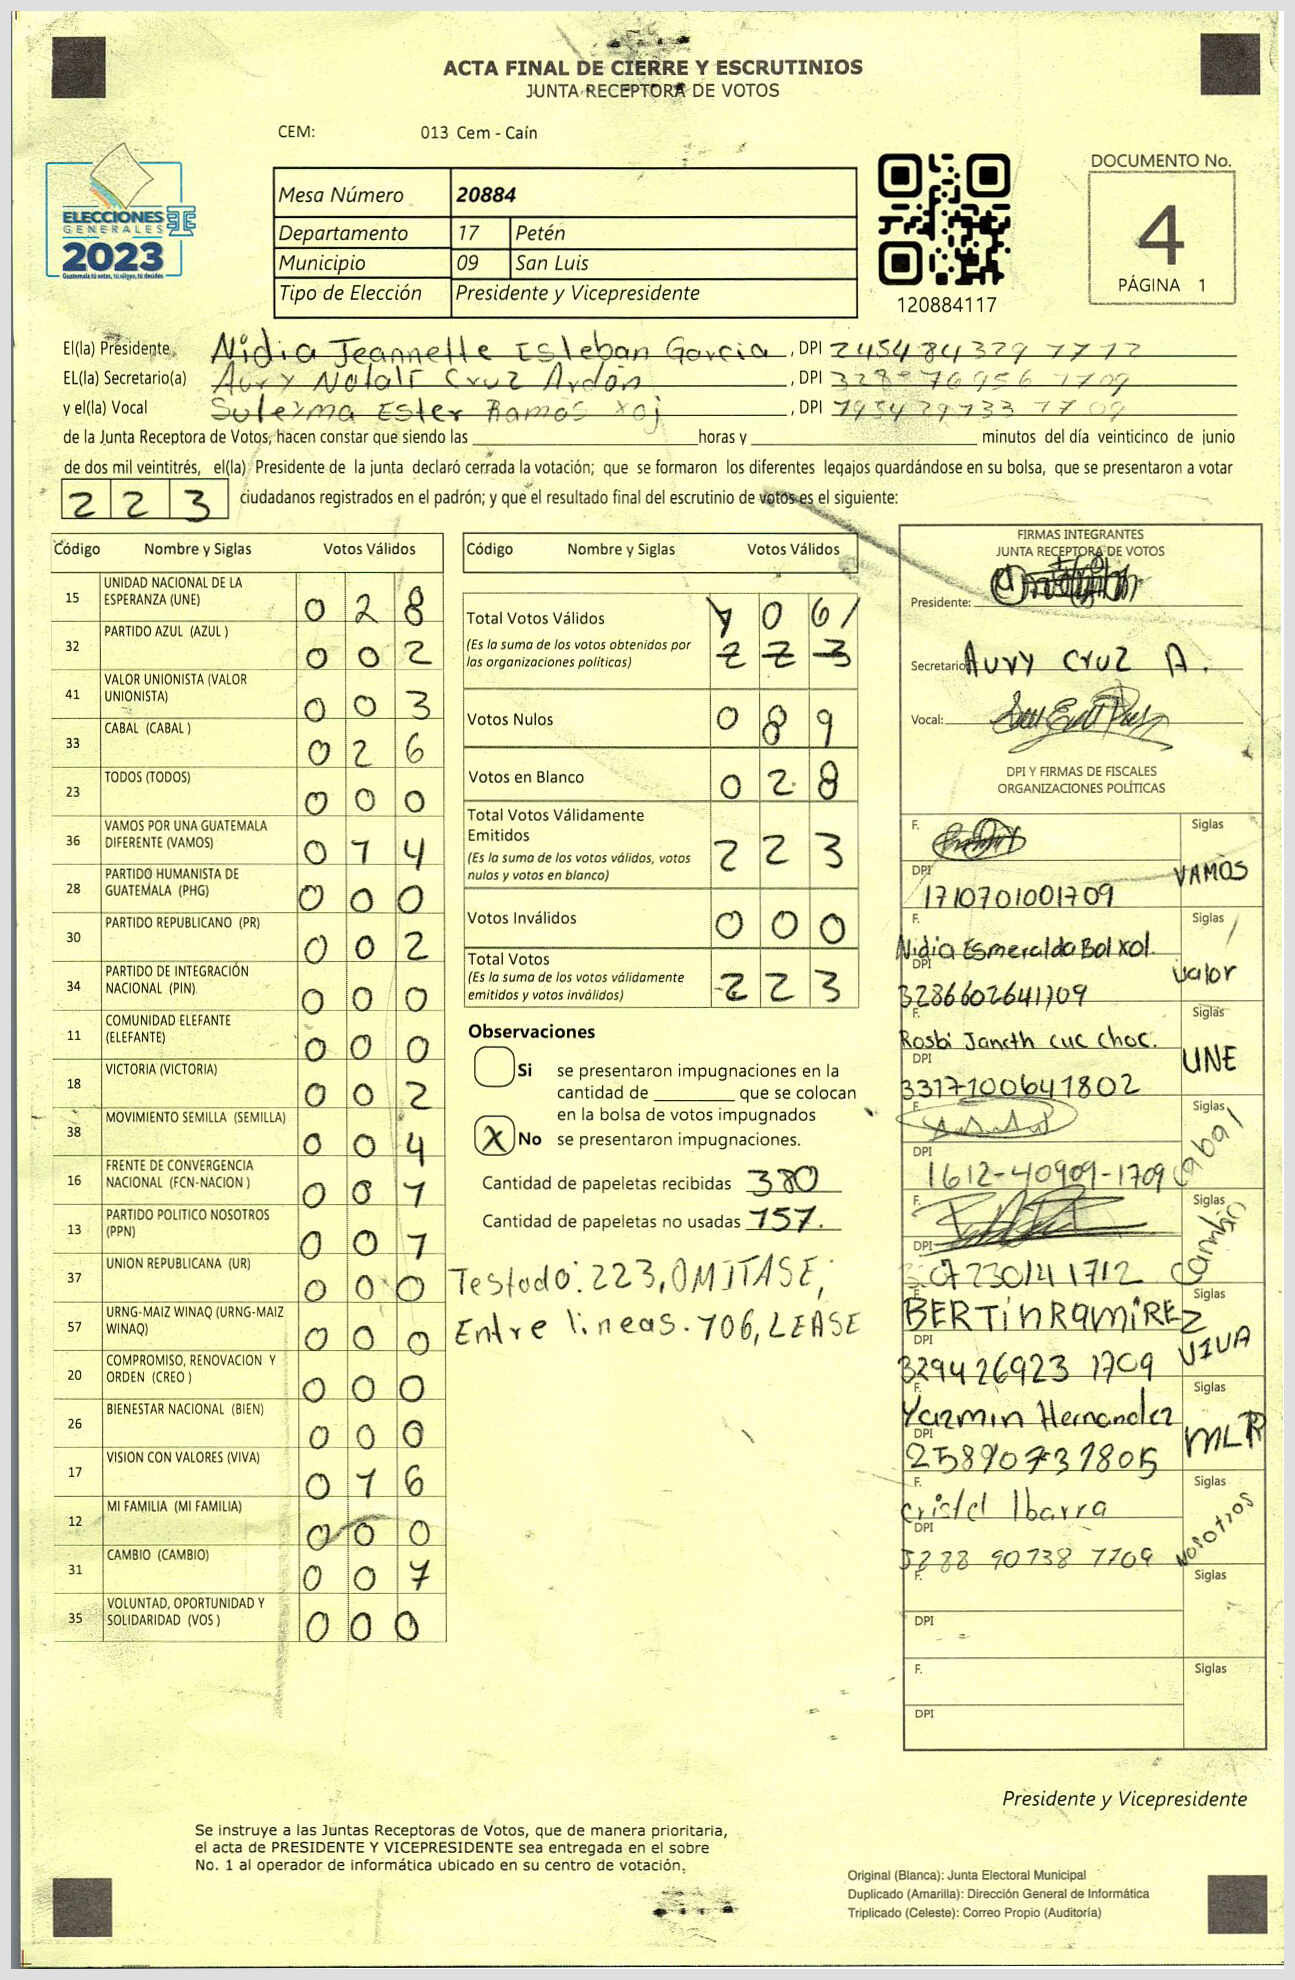 ACTA FINAL DE CIERRE Y ESCRUTINIOS
JUNTA RECEPTORA DE VOTOS
CEM: 013 Cem - Caín
ELECCIONES
GENERALES
2023
Guatemala tú votas, tú eliges, tú decides
Mesa Número 20884
Departamento 17 Petén
Municipio 09 San Luis
Tipo de Elección Presidente y Vicepresidente
120884117
DOCUMENTO No.
4
PÁGINA 1
El(la) Presidente Nidia Jeannette Esteban Garcia, DPI
EL(la) Secretario(a) Aury Natalí Cruz Ardón, DPI
y el(la) Vocal Ester Ramos Xoj, DPI
de la Junta Receptora de Votos, hacen constar que siendo las horas y minutos del día veinticinco de junio
de dos mil veintitrés, el(la) Presidente de la junta declaró cerrada la votación; que se formaron los diferentes legajos guardándose en su bolsa, que se presentaron a votar
223 ciudadanos registrados en el padrón; y que el resultado final del escrutinio de votos es el siguiente:
Código Nombre y Siglas Votos Válidos
15 UNIDAD NACIONAL DE LA ESPERANZA (UNE) 0 2 8
32 PARTIDO AZUL (AZUL ) 0 0 2
41 VALOR UNIONISTA (VALOR UNIONISTA) 0 0 3
33 CABAL (CABAL ) 0 2 6
23 TODOS (TODOS) 0 0 0
36 VAMOS POR UNA GUATEMALA DIFERENTE (VAMOS) 0 1 4
28 PARTIDO HUMANISTA DE GUATEMALA (PHG) 0 0 0
30 PARTIDO REPUBLICANO (PR) 0 0 2
34 PARTIDO DE INTEGRACIÓN NACIONAL (PIN) 0 0 0
11 COMUNIDAD ELEFANTE (ELEFANTE) 0 0 0
18 VICTORIA (VICTORIA) 0 0 2
38 MOVIMIENTO SEMILLA (SEMILLA) 0 0 4
16 FRENTE DE CONVERGENCIA NACIONAL (FCN-NACION ) 0 0 1
13 PARTIDO POLITICO NOSOTROS (PPN) 0 0 1
37 UNION REPUBLICANA (UR) 0 0 0
57 URNG-MAIZ WINAQ (URNG-MAIZ WINAQ) 0 0 0
20 COMPROMISO, RENOVACION Y ORDEN (CREO ) 0 0 0
26 BIENESTAR NACIONAL (BIEN) 0 0 0
17 VISION CON VALORES (VIVA) 0 1 6
12 MI FAMILIA (MI FAMILIA) 0 0 0
31 CAMBIO (CAMBIO) 0 0 7
35 VOLUNTAD, OPORTUNIDAD Y SOLIDARIDAD (VOS ) 0 0 0
Código Nombre y Siglas Votos Válidos
Total Votos Válidos 1 0 6
(Es la suma de los votos obtenidos por las organizaciones políticas) 2 2 3
Votos Nulos 0 8 9
Votos en Blanco 0 2 8
Total Votos Válidamente Emitidos
(Es la suma de los votos válidos, votos nulos y votos en blanco) 2 2 3
Votos Inválidos 0 0 0
Total Votos
(Es la suma de los votos válidamente emitidos y votos inválidos) 2 2 3
Observaciones
Si se presentaron impugnaciones en la
cantidad de que se colocan
en la bolsa de votos impugnados
X No se presentaron impugnaciones.
Cantidad de papeletas recibidas 380
Cantidad de papeletas no usadas 157.
Testado: 223, OMITASE,
Entre lineas. 106, LEASE
FIRMAS INTEGRANTES
JUNTA RECEPTORA DE VOTOS
Presidente:
Secretario: Aury Cruz A.
Vocal:
DPI Y FIRMAS DE FISCALES
ORGANIZACIONES POLÍTICAS
F. Siglas
DPI 1710701001709 VAMOS
F. Nidia Esmeralda Bol Xol. Siglas
DPI 3286602641709 Valor
F. Rosbi Janeth cuc choc. Siglas
DPI 3317100641802 UNE
F. Siglas
DPI 1612-40909-1709 Cabal
F. Siglas
DPI Cambio
F. BERTIN RAMIREZ Siglas
DPI 329426923 1709 VIVA
F. Yazmin Hernandez Siglas
DPI 258907371805 MLP
F. Cristel Ibarra Siglas
DPI 3288 90738 1709 Nosotros
F. Siglas
DPI
F. Siglas
DPI
Presidente y Vicepresidente
Se instruye a las Juntas Receptoras de Votos, que de manera prioritaria,
el acta de PRESIDENTE Y VICEPRESIDENTE sea entregada en el sobre
No. 1 al operador de informática ubicado en su centro de votación.
Original (Blanca): Junta Electoral Municipal
Duplicado (Amarilla): Dirección General de Informática
Triplicado (Celeste): Correo Propio (Auditoría)